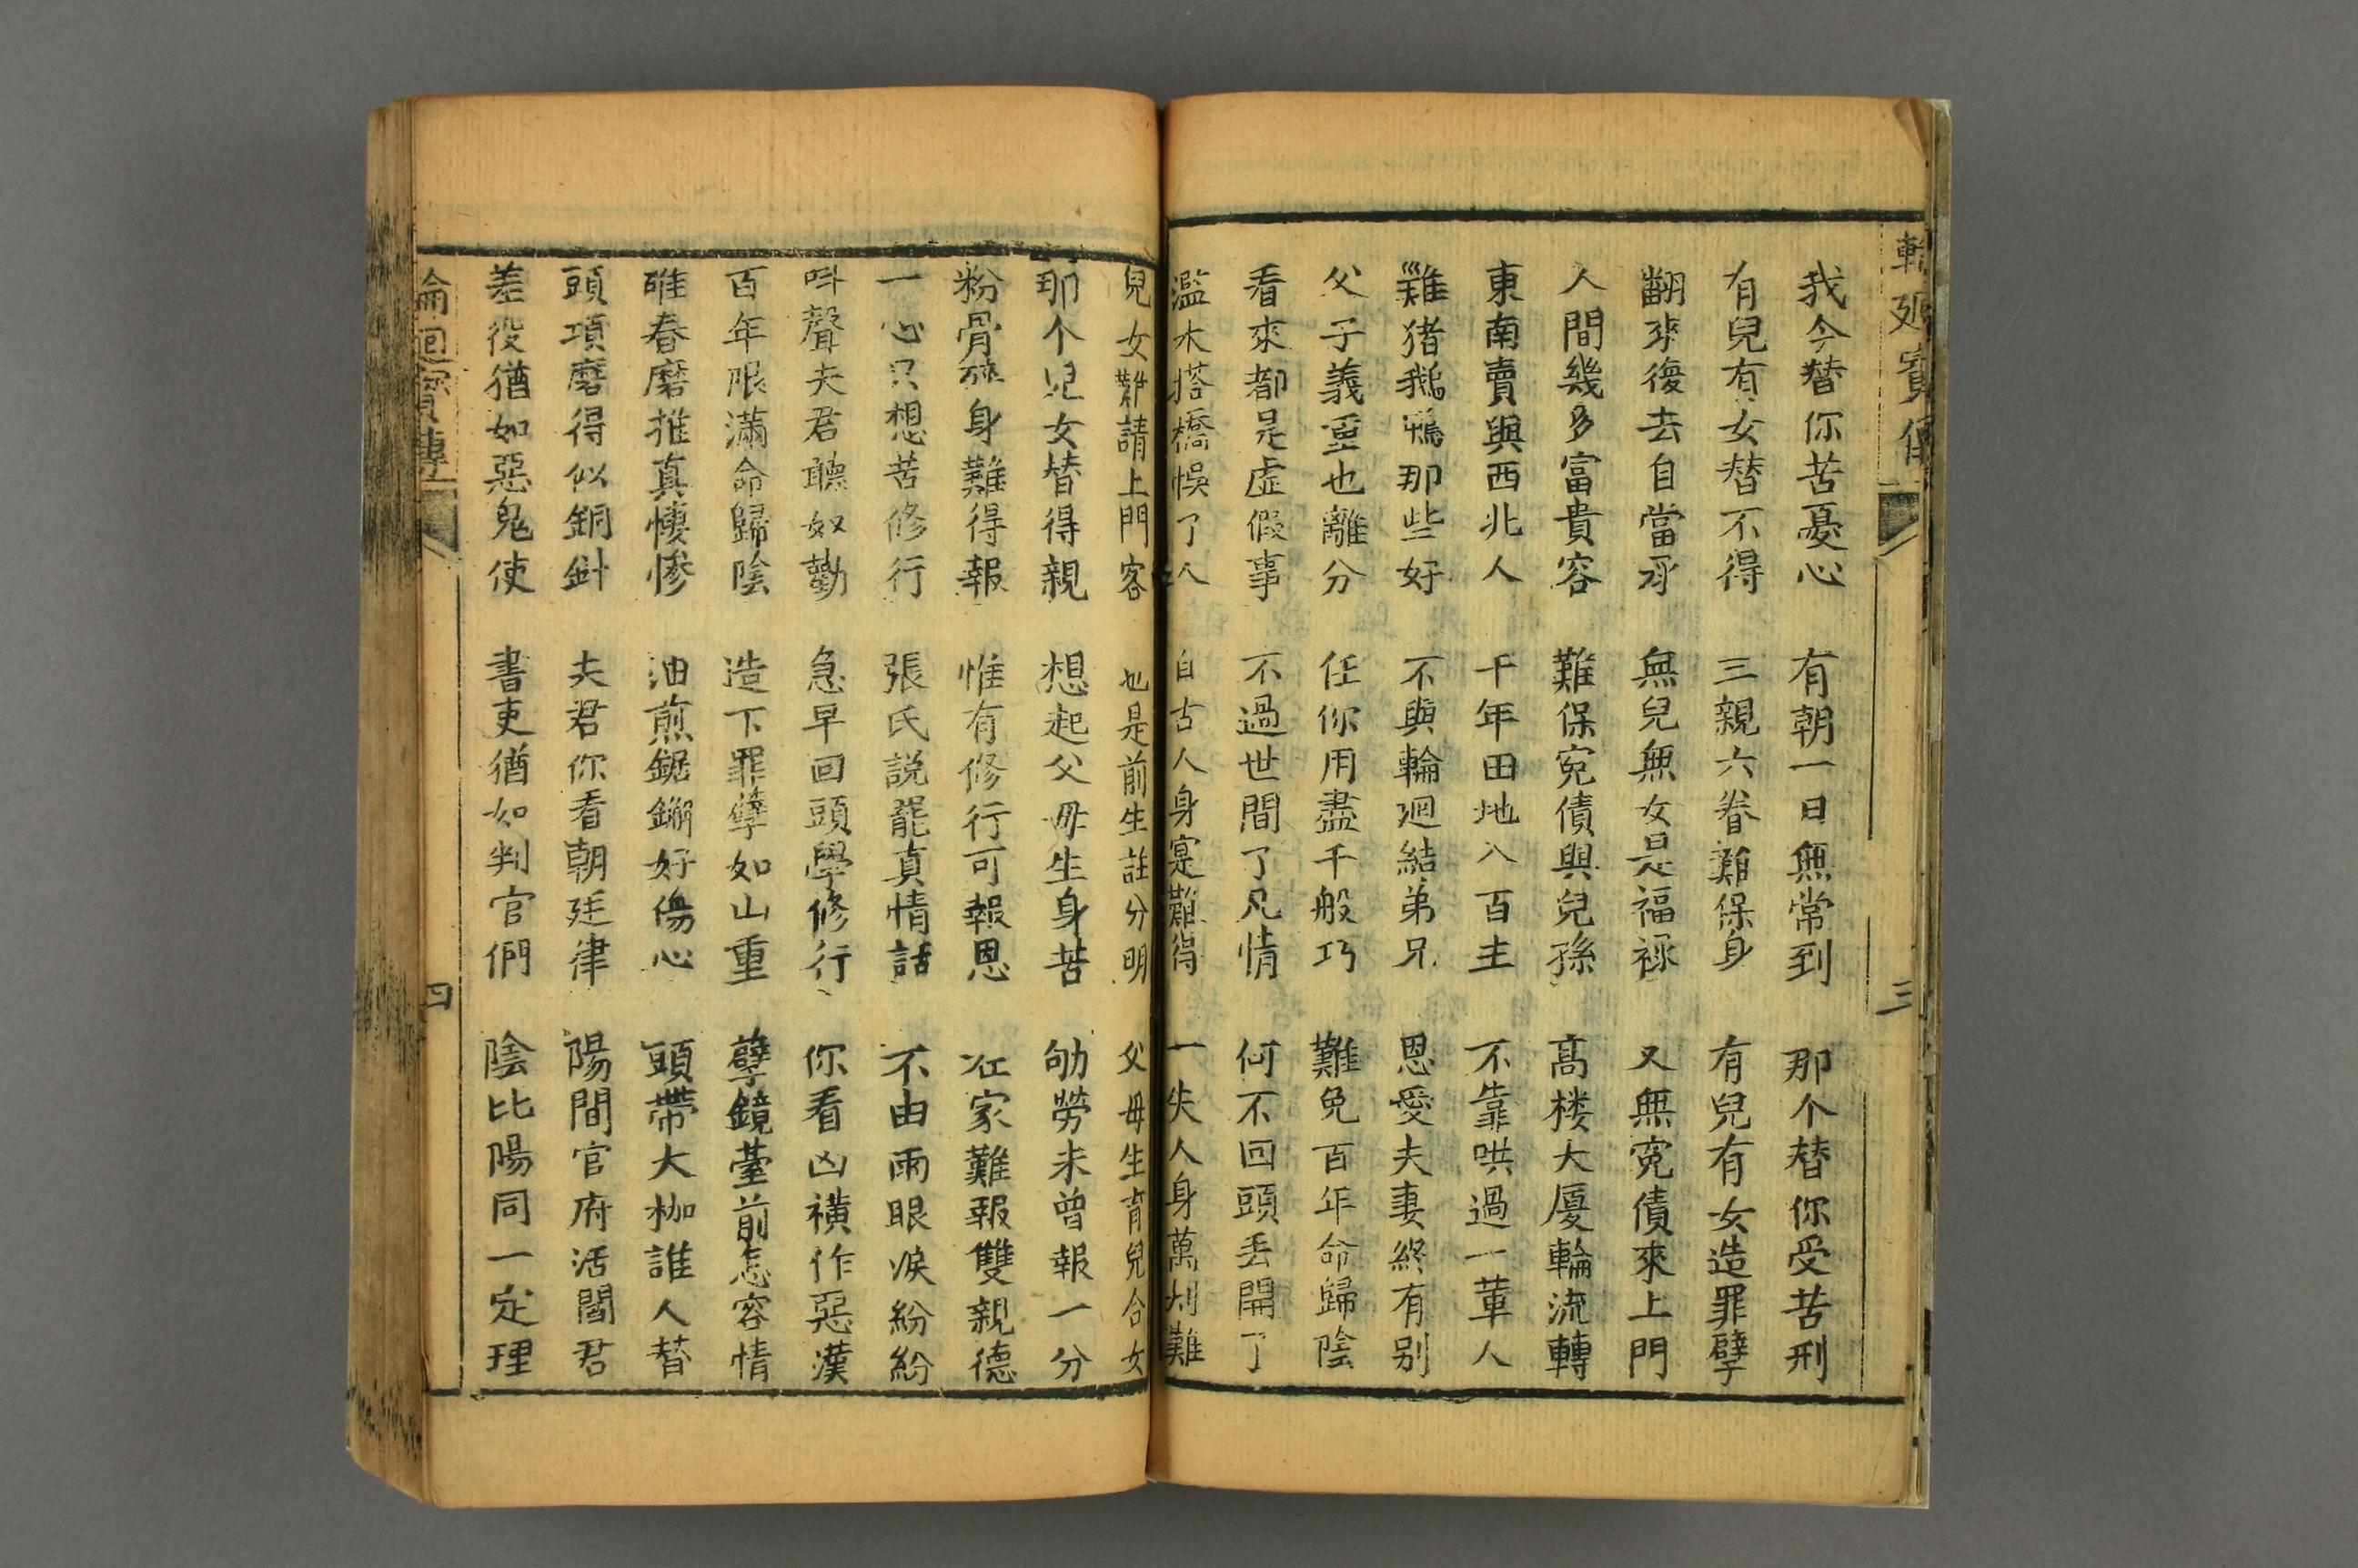 輪廻寶傳
三
我今替你苦憂心　有朝一日無常到　那个替你受苦刑
有兒有女替不得　三親六眷難保身　有兒有女造罪孽
翻來復去自當承　無兒無女是福祿　又無寃債來上門
人間幾多富貴容　難保寃債與兒孫　髙楼大厦輪流轉
東南賣與西北人　千年田地八百主　不靠哄過一輩人
雞猪鵝鴨那些好　不與輪廻結弟兄　恩愛夫妻終有别
父子義重也離分　任你用盡千般巧　難免百年命歸陰
看來都是虛假事　不過世間了凡情　何不回頭丢開了
濫木搭橋悞了人　自古人身寔難得　一失人身萬刦難
兒女難請上門客　也是前生註分明　父母生育兒合女
那个兒女替得親　想起父母生身苦　劬勞未曾報一分
粉骨碎身難得報　惟有修行可報恩　在家難報雙親德
一心只想苦修行　張氏説罷真情話　不由雨眼淚紛紛
呌聲夫君聽奴勸　急早回頭學修行　你看凶横作惡漢
百年限滿命歸陰　造下罪孽如山重　孽鏡臺前怎容情
碓舂磨推真悽慘　油煎鋸鎙好傷心　頭帶大枷誰人替
頭項磨得似銅針　夫君你看朝廷律　陽間官府活閻君
差役猶如惡鬼使　書吏猶如判官們　陰比陽同一定理
輪廻寶傳
四